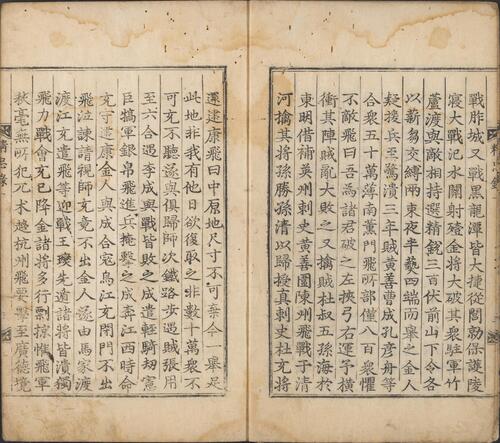 戰胙城又戰黑龍潭皆大捷從閭勍保護陵
寢大戰汜水關射殪金將大破其衆駐軍竹
蘆渡與敵相持選精銳三百伏前山下令各
以薪芻交縛兩束夜半爇四端而舉之金人
疑援兵至驚潰三年賊黃善曹成孔彦舟等
合衆五十萬薄南薰門飛所部僅八百衆懼
不敵飛曰吾爲諸君破之左挾弓右運矛橫
衝其陣賊亂大敗之又擒賊杜叔五孫海於
東明借補英州刺史黃善圍陳州飛戰于清
河擒其將孫勝孫清以歸授真刺史杜充將
還建康飛曰中原地尺寸不可棄今一舉足
此地非我有他日欲復取之非數十萬衆不
可充不聽遂與俱歸師次鐵路步遇賊張用
至六合遇李成與戰皆敗之成遣輕騎刼憲
臣犒軍銀帛飛進兵掩擊之成奔江西時命
充守建康金人與成合寇烏江充閉門不出
飛泣諫請視師充竟不出金人遂由馬家渡
渡江充遣飛等迎戰王𤫉先遁諸將皆潰獨
飛力戰會充已降金諸將多行剽掠惟飛軍
秋毫無所犯兀术趨杭州飛要擊至廣德境
精忠錄